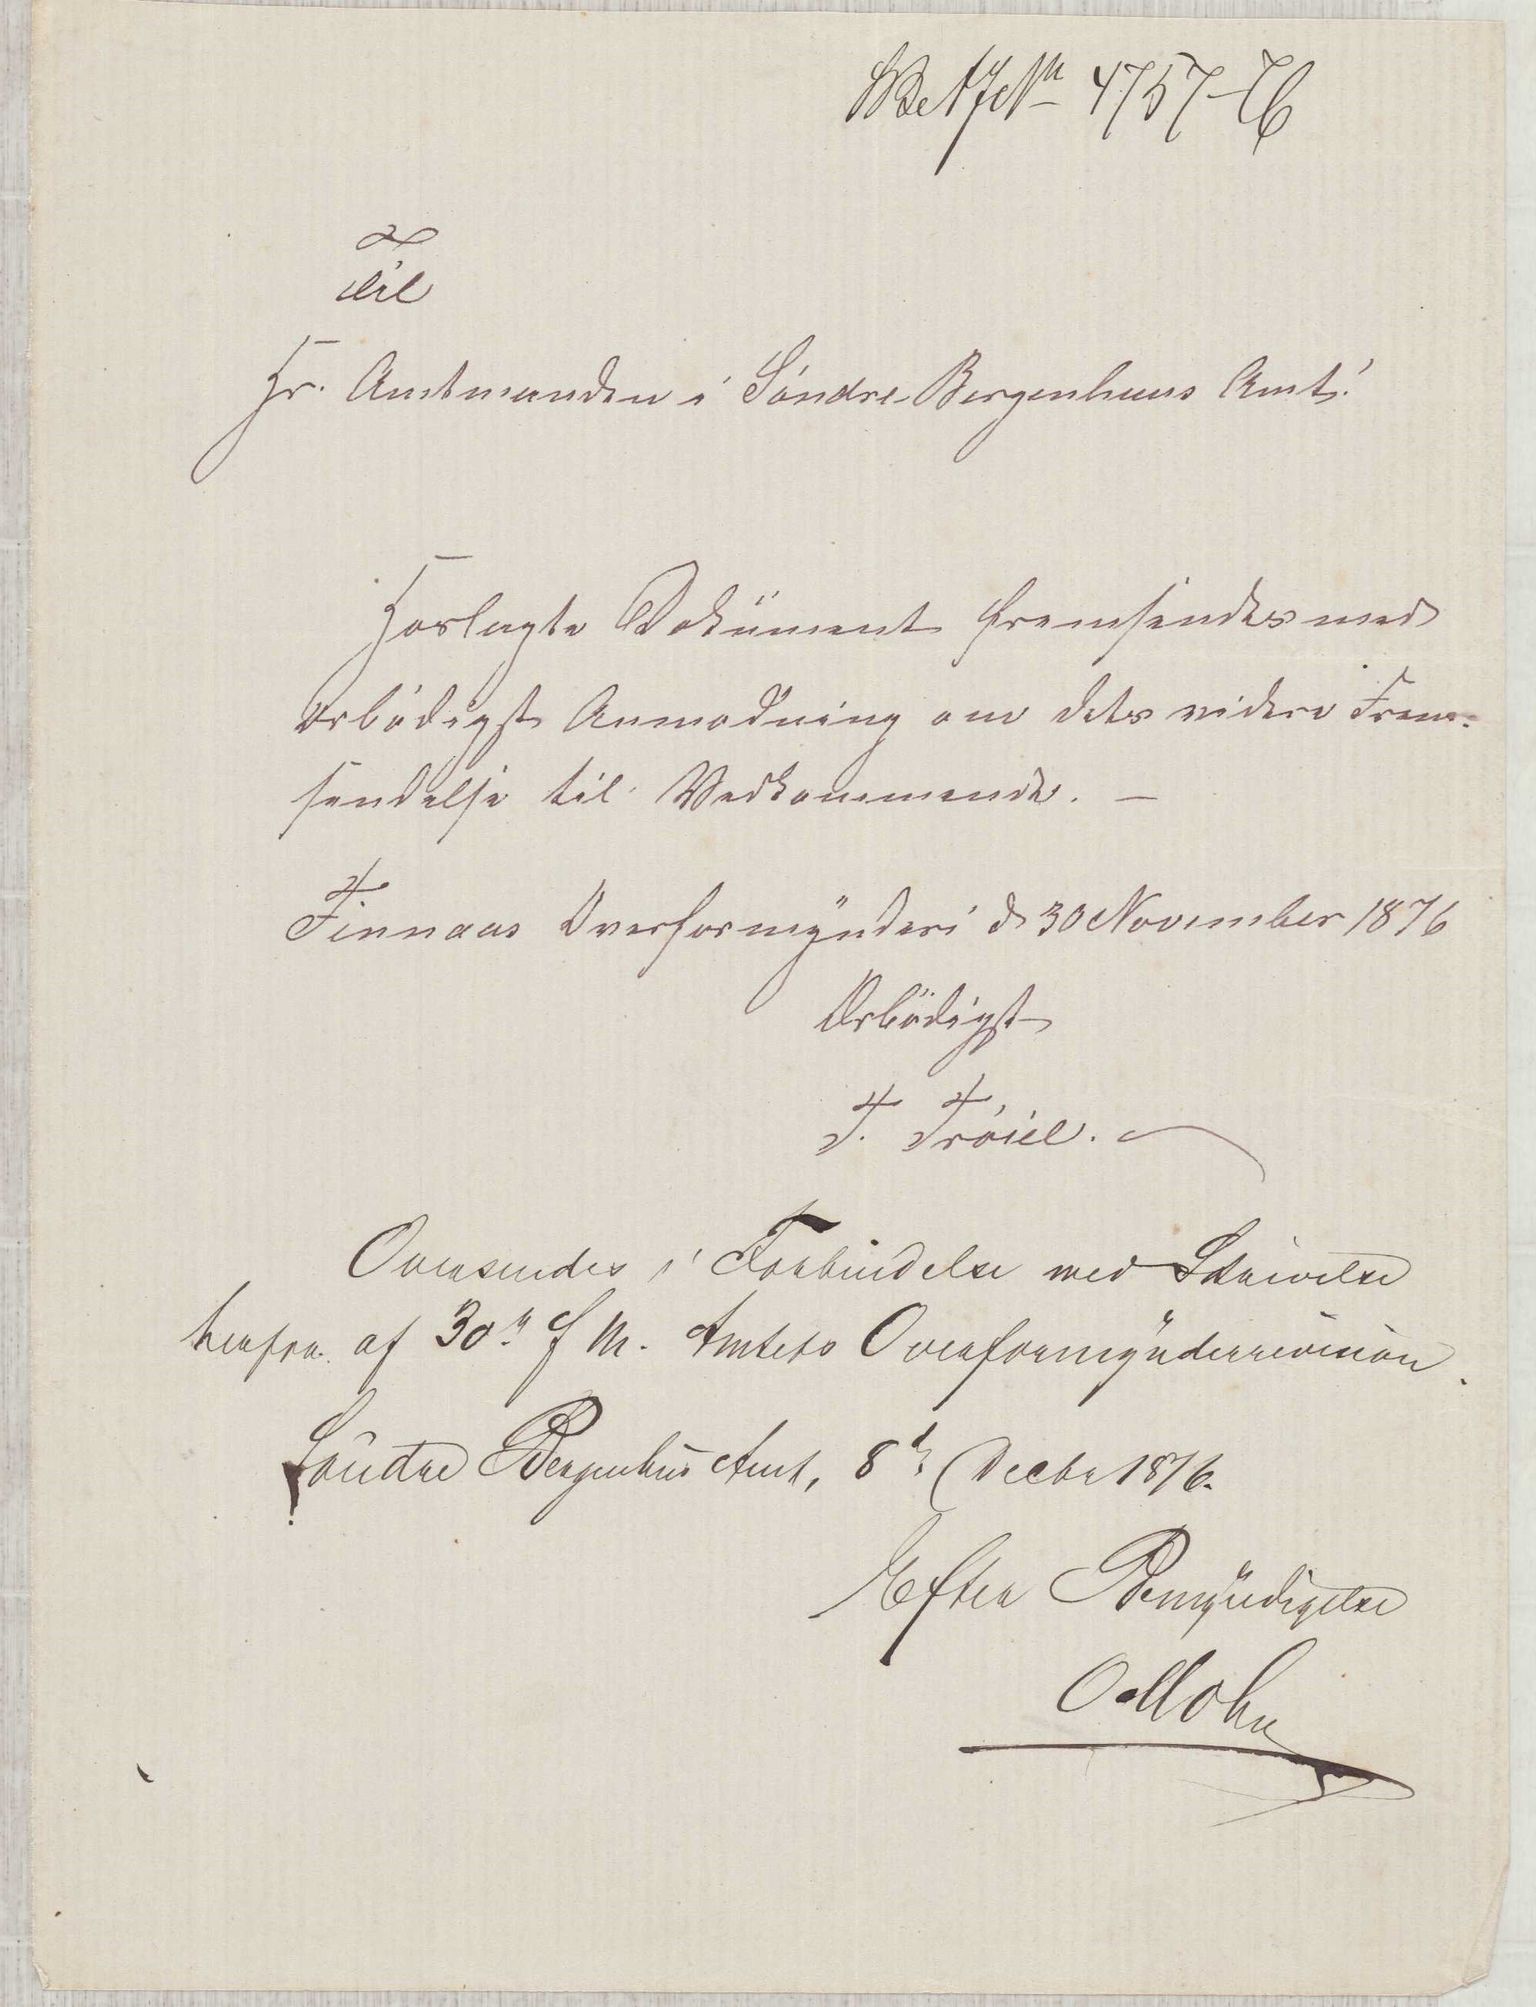 SBeA JeNr 4757-76
Til
Hr. Amtmanden i Söndre Bergenhuus Amt!
Hoslagte Dokument fremsendes med
ærbödigst Anmodning om dets videre Frem-
sendelse til Vedkommende. —
Finnaas Overformynderi d 30 November 1876
Ærbödigst
F. Tröiel.
Oversendes i Forbindelse med Skrivelse
herfra af 30te f M. Amtets Overformynderrevision.
Söndre Bergenhus Amt, 8de Decbr 1876.
Efter Bemyndigelse
O Mohn